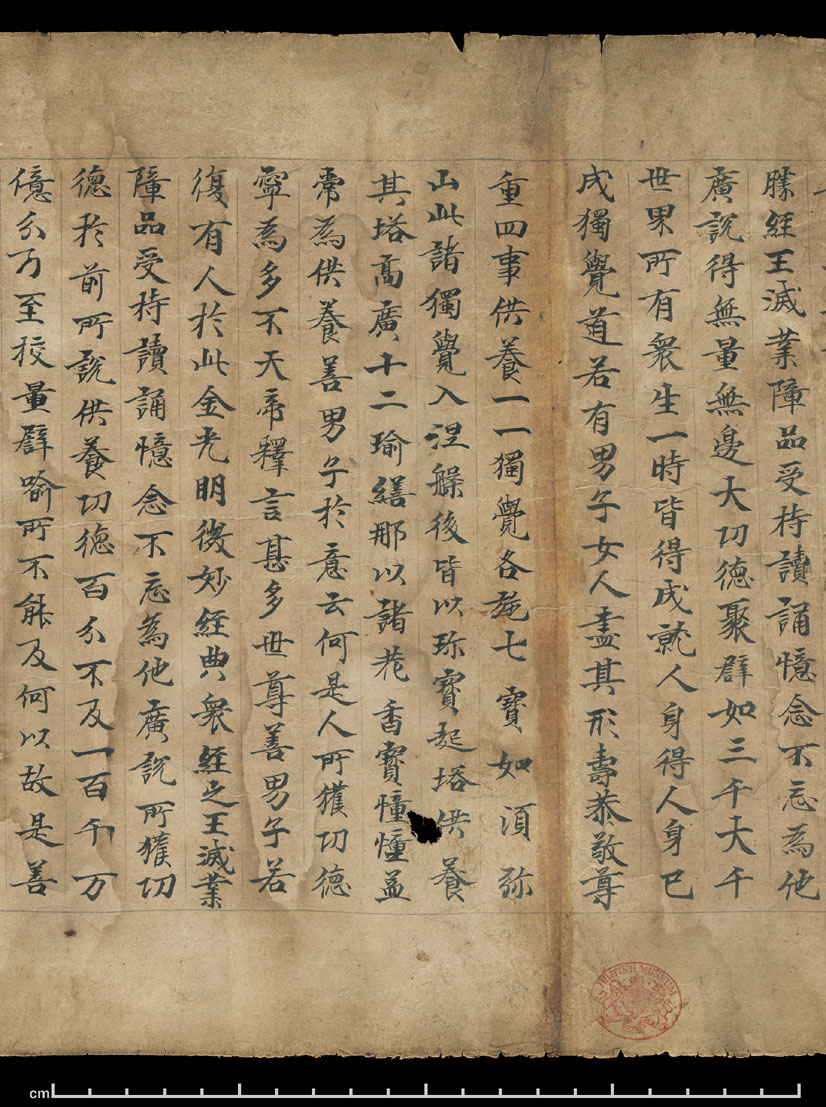 勝經王滅業障品受持讀誦憶念不忘為他
廣說得無量無邊大功德聚譬如三千大千
世界所有衆生一時皆得成就人身得人身已
成獨覺道若有男子女人盡其形壽恭敬尊
重四事供養一一獨覺各施七寶如須弥
山此諸獨覺入涅槃後皆以珎寶起塔供養
其塔高廣十二瑜繕那以諸花香寶憧憧盖
常為供養善男子於意云何是人所獲功德
寧為多不天帝釋言甚多世尊善男子若
復有人於此金光明微妙經典衆經之王滅業
障品受持讀誦憶念不忘為他廣說所獲功
德於前所說供養功德百分不及一百千万
億分乃至挍量譬喻所不能及何以故是善
BRITISH MUSEUM
cm